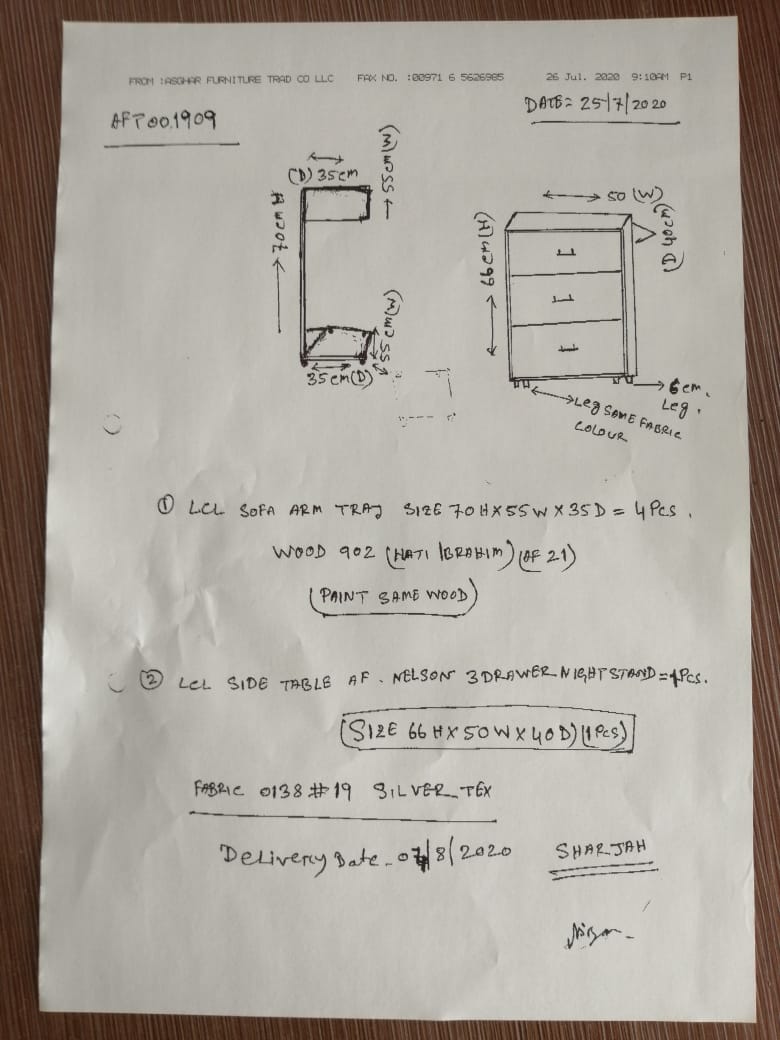 FROM :ASGHAR FURNITURE TRAD CO LLC FAX NO. :00971 6 5626985 26 Jul. 2020 9:10AM P1
DATE= 25/7/2020
AFT001909
(D) 35cm
55cm (W)
70cm H
55cm (W)
35cm(D)
50 (W)
40cm (D)
66cm (H)
6cm.
Leg.
Leg SAME FABRIC
COLOUR
① LCL SOFA ARM TRAJ SIZE 70HX55WX35D = 4Pcs.
WOOD 902 (HATI IBRAHIM) (AF 21)
(PAINT SAME WOOD)
② LCL SIDE TABLE AF. NELSON 3DRAWER NIGHTSTAND = 1Pcs.
(SIZE 66HX50WX40D) (1Pcs)
FABRIC 0138 #19 SILVER TEX
Delivery Date - 07/8/2020 SHARJAH